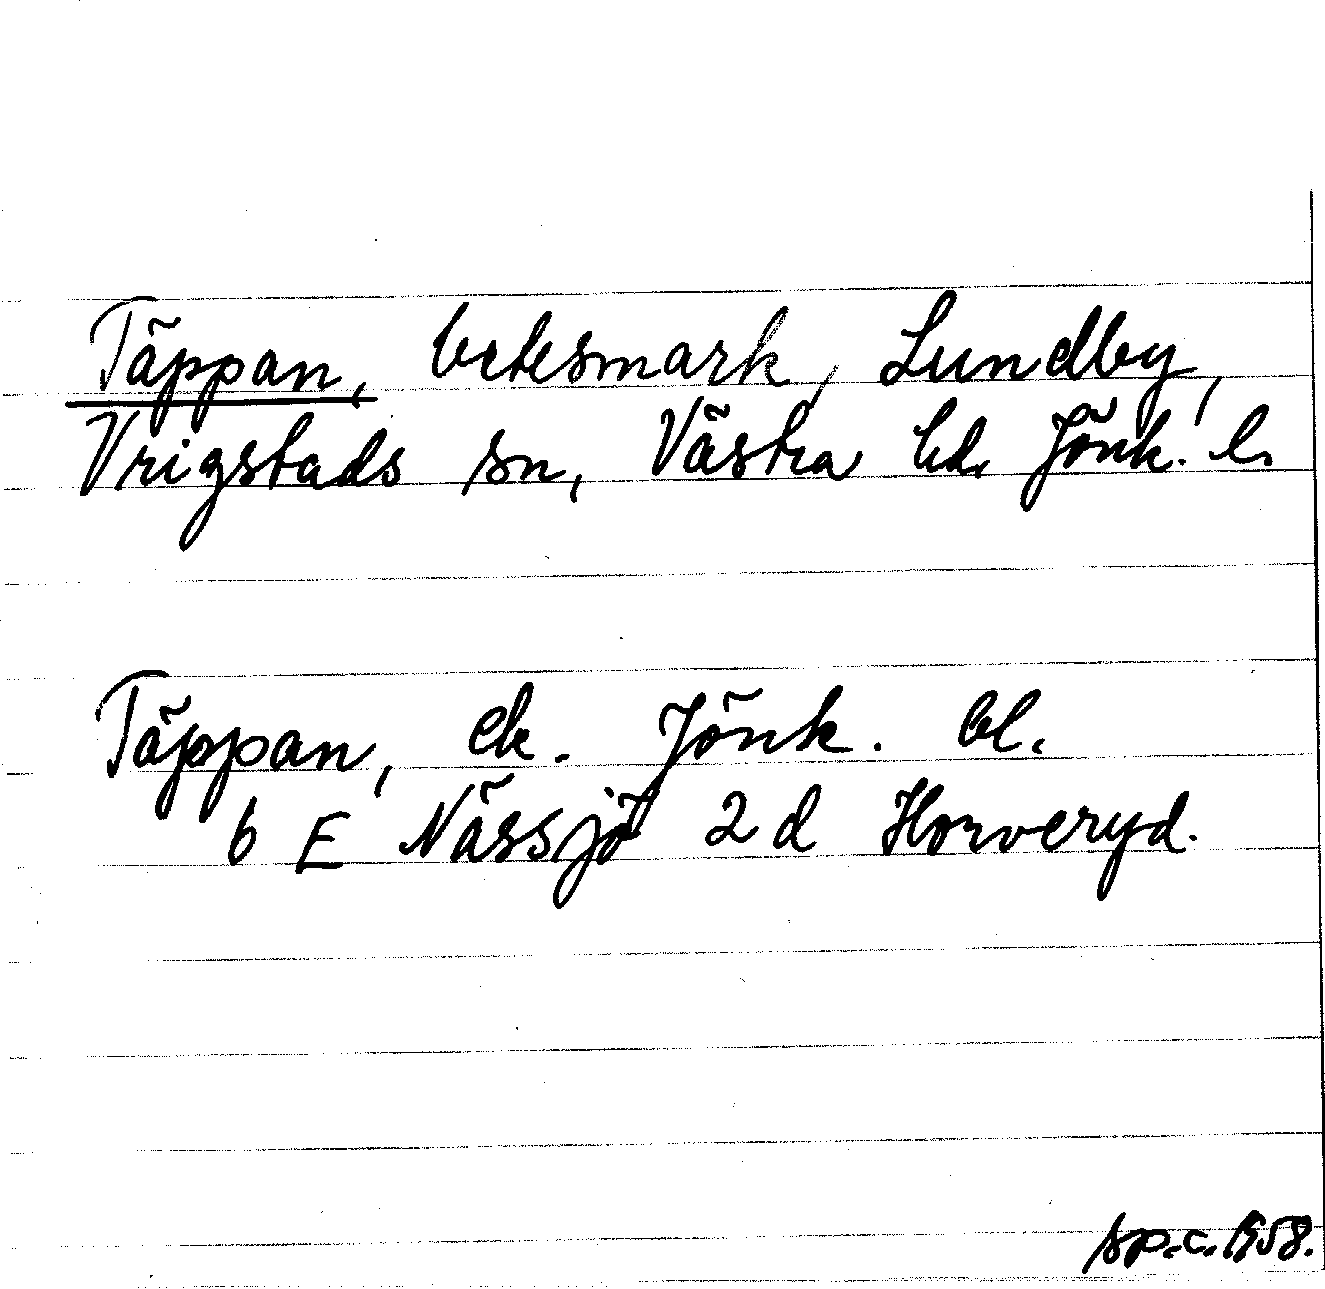 Täppan, betesmark, Lundby,
Vrigstads sn, Västra hd. Jönk. l.
Täppan, ek. Jönk. bl.
6 E Nässjö 2 d Horveryd.
sp.c. 1958.